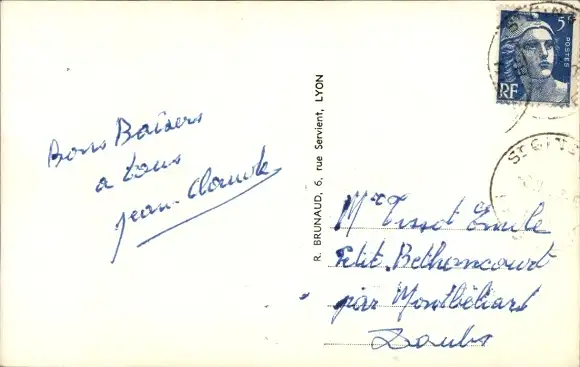 Bons Baisers
a tous
Jean-Claude
R. BRUNAUD, 6, rue Servient, LYON
5F
POSTES
RF
ST GING
ST GING
Mr Tissot Emile
Petit-Bethoncourt
par Montbéliard
Doubs